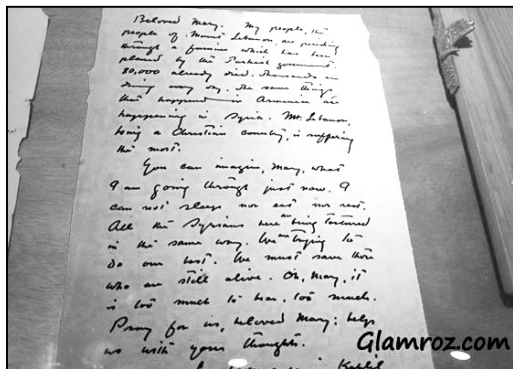 Beloved Mary. My people, the
people of Mount Lebanon, are perishing
through a famine which has been
planned by the Turkish government.
80,000 already died. Thousands are
dying every day. The same things
that happened in Armenia are
happening in Syria. Mt. Lebanon,
being a Christian country, is suffering
the most.
You can imagine, Mary, what
I am going through just now. I
can not sleep nor eat nor rest.
All the Syrians here are being tortured
in the same way. We are trying to
do our best. We must save those
who are still alive. Oh, Mary, it
is too much to bear, too much.
Pray for us, beloved Mary: help
us with your thoughts.
Kahlil
Glamroz.com